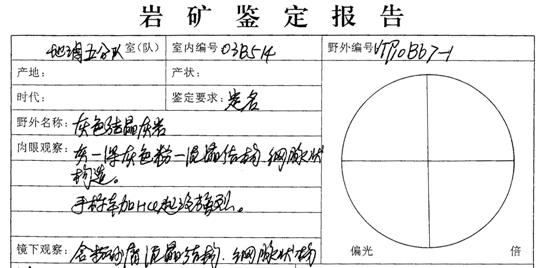 岩矿鉴定报告
地调五分队 室(队) 室内编号 03B514 野外编号 VTP10Bb7-1
产地: 产状:
时代: 鉴定要求: 定名
野外名称: 灰色结晶灰岩
肉眼观察: 灰—深灰色粉—泥晶结构、细脉状
构造。
手标本加HCl起泡强烈。
镜下观察: 含粉砂屑泥晶结构、细脉状构
偏光 倍